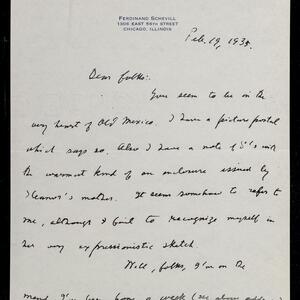 FERDINAND SCHEVILL
1306 EAST 56TH STREET
CHICAGO, ILLINOIS
Feb. 19, 1935.
Dear folks:
You seem to be in the
very heart of Old Mexico. I have a picture postal
which says so. Also I have a note of S's with
the warmest kind of an enclosure issued by
Eleanor's mother. It seems somehow to refer to
me, although I fail to recognize myself in
her very expressionistic sketch.
Well, folks, I'm on the
I've been home a week (see above address)